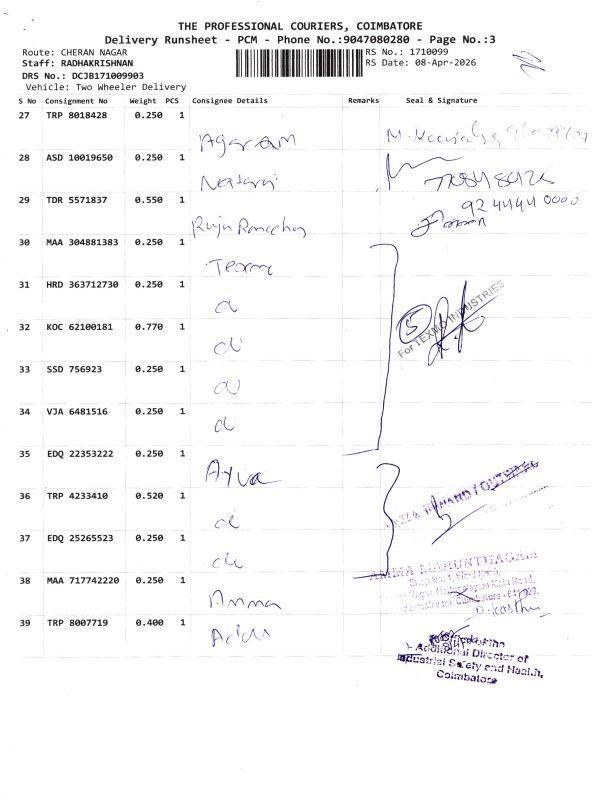 THE PROFESSIONAL COURIERS, COIMBATORE
Delivery Runsheet - PCM - Phone No.:9047080280 - Page No.:3
Route: CHERAN NAGAR
RS No.: 1710099
Staff: RADHAKRISHNAN
RS Date: 08-Apr-2026
DRS No.: DCJB171009903
Vehicle: Two Wheeler Delivery
S No Consignment No Weight PCS Consignee Details Remarks Seal & Signature
27 TRP 8018428 0.250 1
Agaram
28 ASD 10019650 0.250 1
Nataraj
29 TDR 5571837 0.550 1
924444 0000
30 MAA 304881383 0.250 1
Texmo
31 HRD 363712730 0.250 1
32 KOC 62100181 0.770 1
5
For TEXMO INDUSTRIES
33 SSD 756923 0.250 1
34 VJA 6481516 0.250 1
35 EDQ 22353222 0.250 1
36 TRP 4233410 0.520 1
37 EDQ 25265523 0.250 1
38 MAA 717742220 0.250 1
Amma
39 TRP 8007719 0.400 1
Additional Director of
Industrial Safety and Health,
Coimbatore